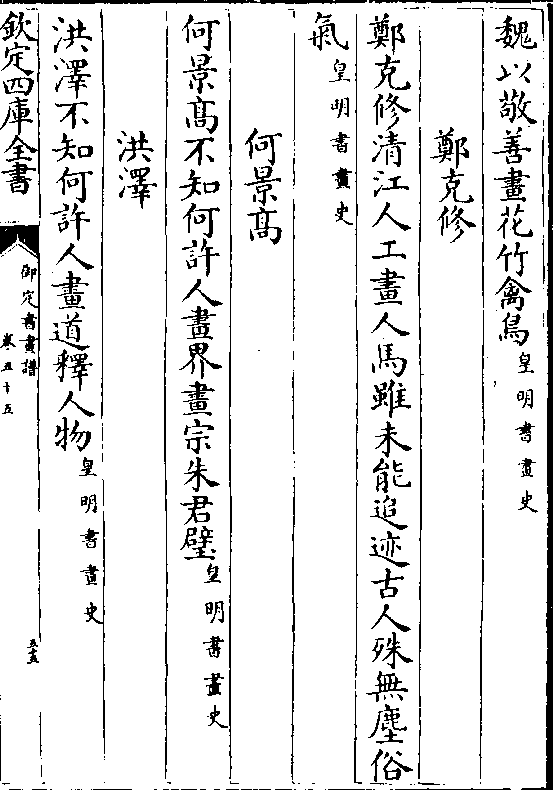 魏以敬善畫花竹禽鳥皇明書畫史
鄭克修
鄭克修清江人工畫人馬雖未能追迹古人殊無塵俗
氣皇明書畫史
何景髙
何景髙不知何許人畫界畫宗朱君璧皇明書畫史
洪澤
洪澤不知何許人畫道釋人物皇明書畫史
欽定四庫全書
御定書畫譜
卷五十五
五十五